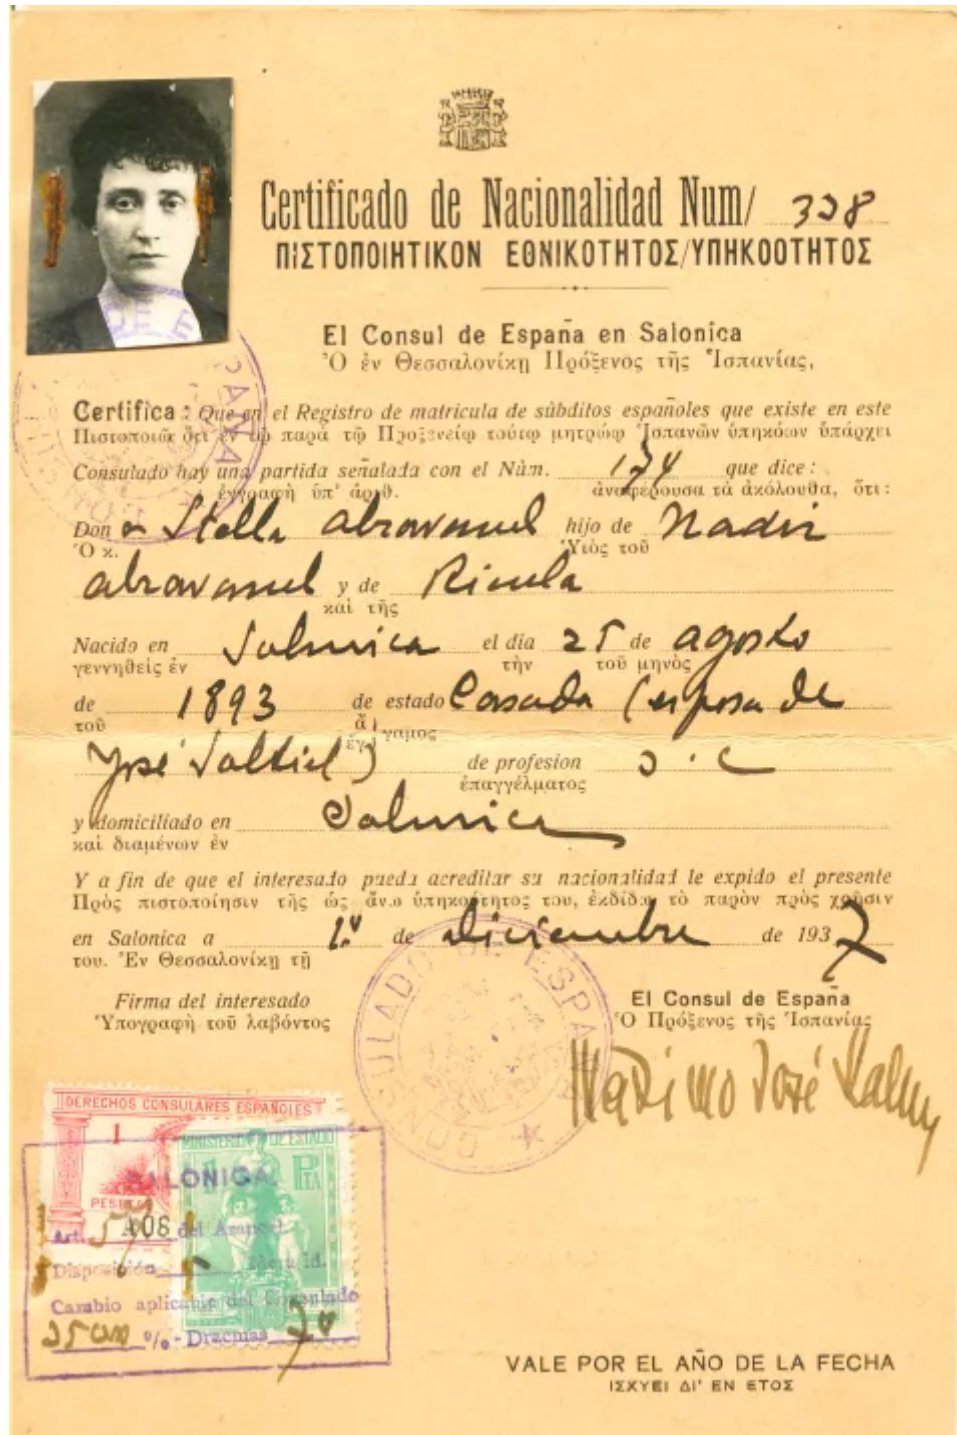 Certificado de Nacionalidad Num/ 338
ΠΙΣΤΟΠΟΙΗΤΙΚΟΝ ΕΘΝΙΚΟΤΗΤΟΣ/ΥΠΗΚΟΟΤΗΤΟΣ
El Consul de España en Salonica
Ὁ ἐν Θεσσαλονίκῃ Πρόξενος τῆς Ἱσπανίας,
Certifica: Que en el Registro de matricula de súbditos españoles que existe en este
Πιστοποιῶ ὅτι ἐν τῷ παρὰ τῷ Προξενείῳ τούτῳ μητρώῳ Ἱσπανῶν ὑπηκόων ὑπάρχει
Consulado hay una partida señalada con el Núm. 174 que dice:
ἐγγραφὴ ὑπ' ἀριθ. ἀναφέρουσα τὰ ἀκόλουθα, ὅτι:
Don a Stella Abravanel hijo de Nadir
Ὁ κ. Ὑιὸς τοῦ
Abravanel y de Ricula
καὶ τῆς
Nacido en Salonica el día 25 de agosto
γεννηθεὶς ἐν τὴν τοῦ μηνὸς
de 1893 de estado Casada (esposa de
τοῦ ἄ) ἔγ) γαμος
José Saltiel) de profesion S. C
ἐπαγγέλματος
y domiciliado en Salonica
καὶ διαμένων ἐν
Y a fin de que el interesado pueda acreditar su nacionalidad le expido el presente
Πρὸς πιστοποίησιν τῆς ὡς ἄνω ὑπηκοότητος του, ἐκδίδω τὸ παρὸν πρὸς χρῆσιν
en Salonica a 1º de diciembre de 1937
του. Ἐν Θεσσαλονίκῃ τῇ
Firma del interesado El Consul de España
Ὑπογραφὴ τοῦ λαβόντος Ὁ Πρόξενος τῆς Ἱσπανίας
CONSULADO DE ESPAÑA
Maximo José
DERECHOS CONSULARES ESPAÑOLES
MINISTERIO DE ESTADO
1 PTA
SALONICA
Art. del Arancel
Disposición
Cambio aplicable del Consulado
% - Drachmas 70
VALE POR EL AÑO DE LA FECHA
ΙΣΧΥΕΙ ΔΙ' ΕΝ ΕΤΟΣ